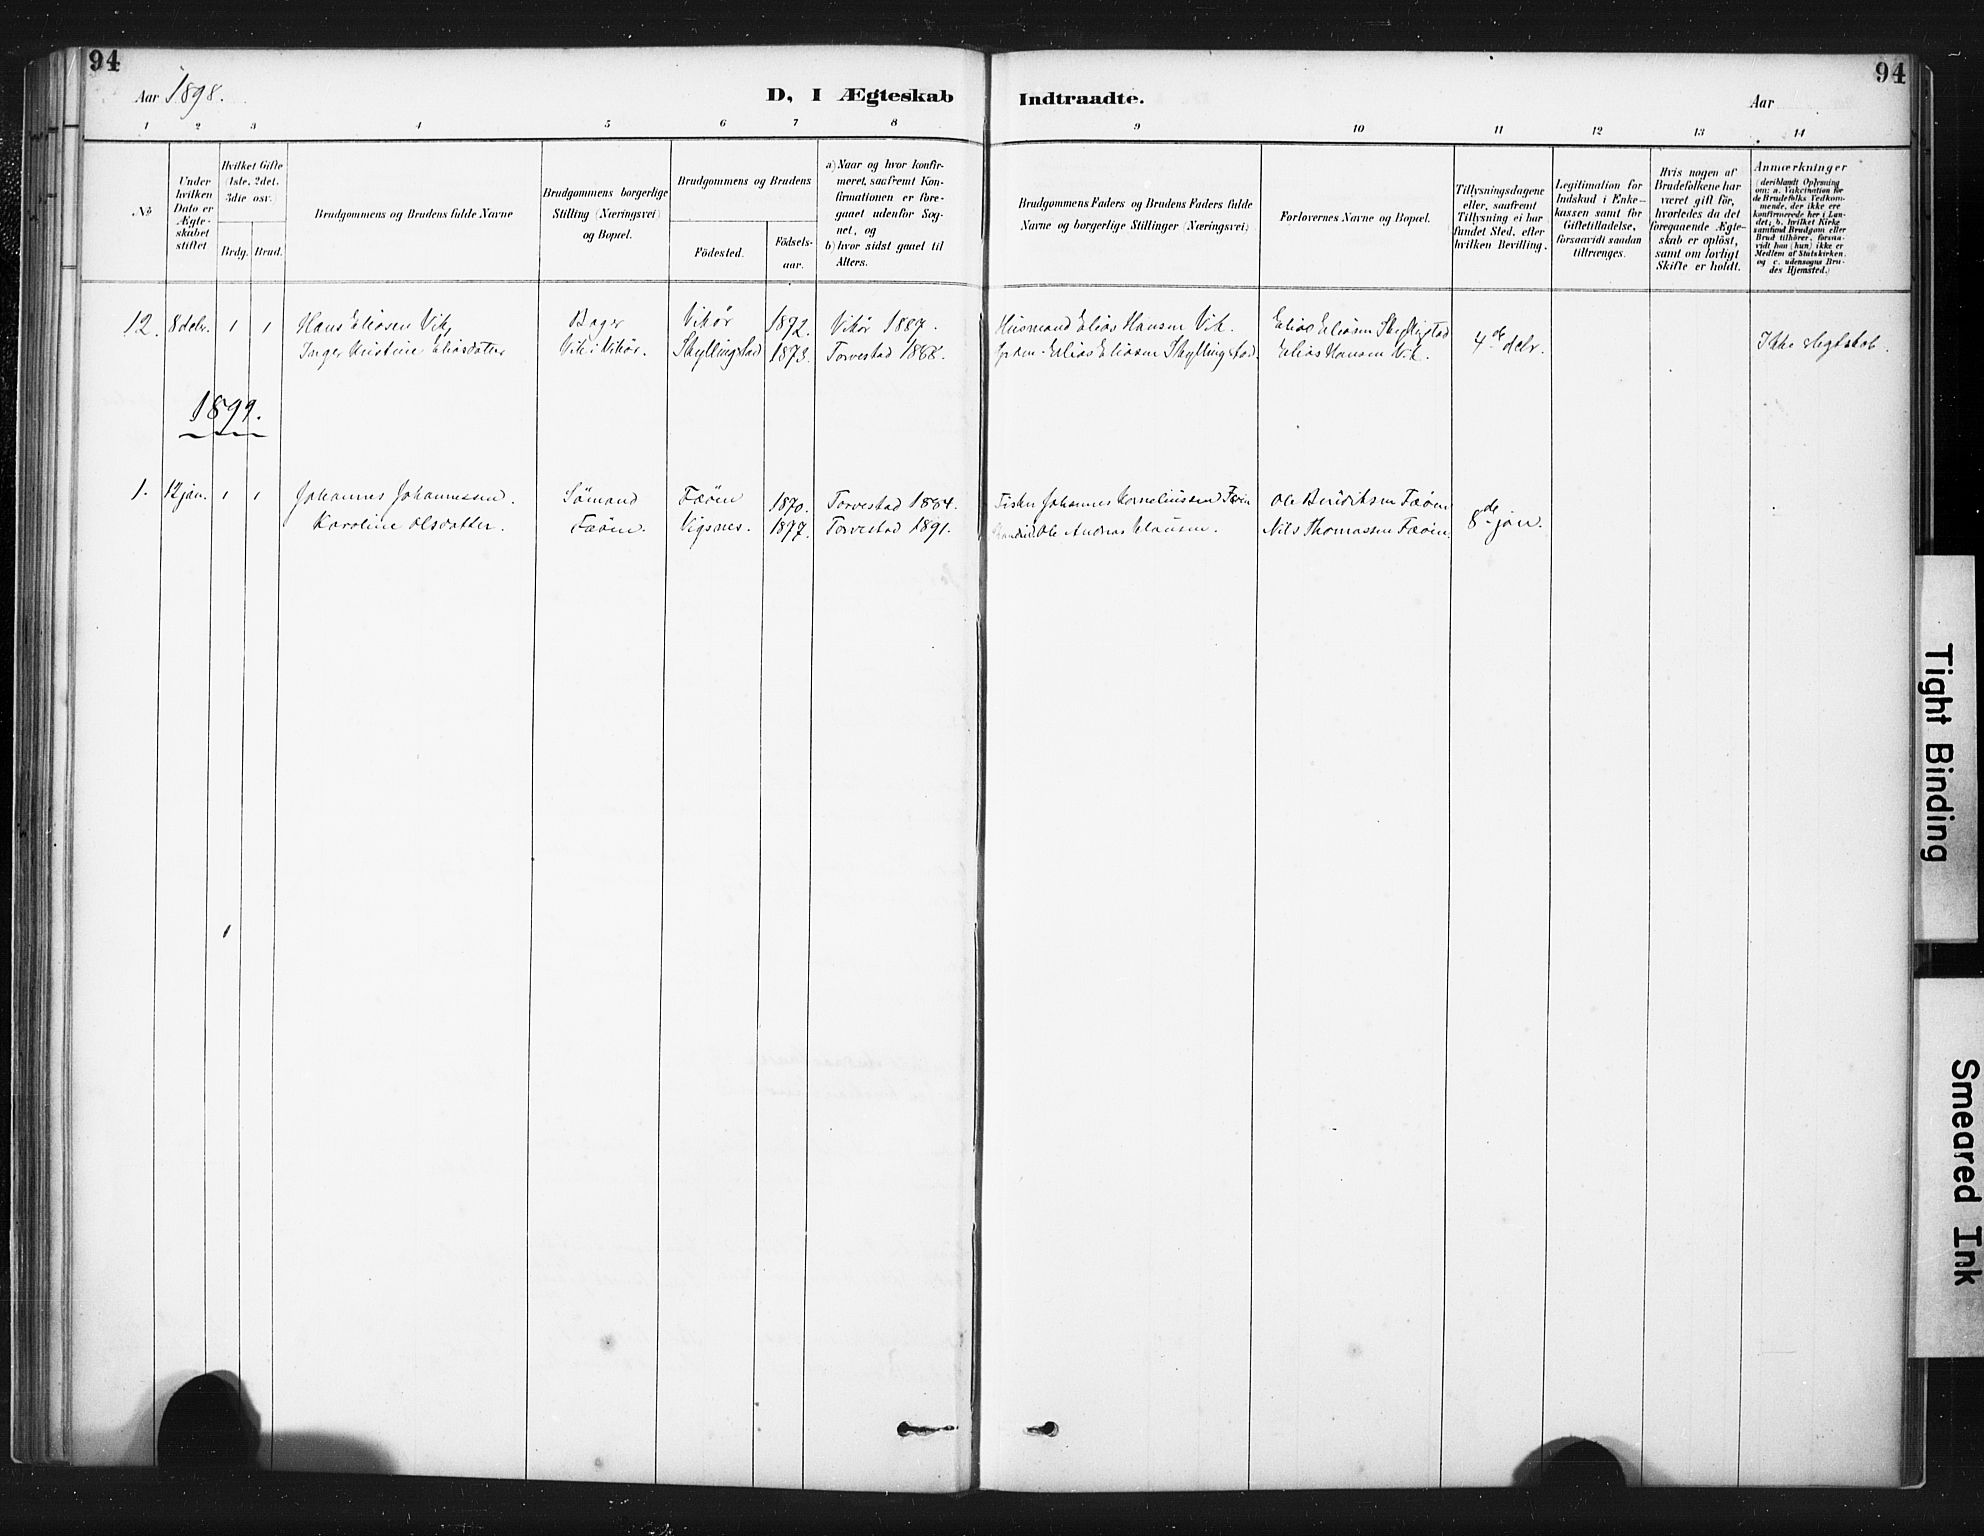 94
94
Aar 1898.
D, I Ægteskab
Indtraadte.
Aar
1 2 3 4 5 6 7 8
9 10 11 12 13 14
No
Under hvilken Dato er Ægteskabet stiftet
Hvilket Gifte (1ste, 2det, 3die osv.)
Brdg. Brud.
Brudgommens og Brudens fulde Navne
Brudgommens borgerlige Stilling (Næringsvei) og Bopæl.
Brudgommens og Brudens
Födested.
Födsels-aar.
a) Naar og hvor konfirmeret, saafremt Konfirmationen er foregaaet udenfor Sognet, og
b) hvor sidst gaaet til Alters.
Brudgommens Faders og Brudens Faders fulde Navne og borgerlige Stillinger (Næringsvei)
Forlovernes Navne og Bopæl.
Tillysningsdagene eller, saafremt Tillysning ei har fundet Sted, efter hvilken Bevilling.
Legitimation for Indskud i Enkekassen samt for Giftetilladelse, forsaavidt saadan tiltrænges.
Hvis nogen af Brudefolkene har været gift för, hvorledes da det foregaaende Ægteskab er oplöst, samt om lovligt Skifte er holdt.
Anmærkninger (deriblandt Oplysning om: a. Vakcination for de Brudefolks Vedkommende, der ikke ere konfirmerede her i Landet; b. hvilket Kirkesamfund Brudgom eller Brud tilhörer, forsaavidt han (hun) ikke er Medlem af Statskirken, og c. udensogns Brudes Hjemsted.)
12. 8 debr. 1 1 Hans Eliasen Vik, Bager Vikör 1872. Vikör 1887. Husmand Elias Hansen Vik. Elias Eliasen Skyllingstad 4de debr. Ikke slegtskab.
Inger Kristine Eliasdatter Vik i Vikör. Skyllingstad 1873. Torvestad 1888. Elias Eliasen Skyllingstad Elias Hansen Vik.
1899.
1. 12 jan. 1 1 Johannes Johannessen. Sömand Fæöen 1870. Torvestad 1884. Fisker Johannes Korneliussen Fæöen Ole Bendiksen Fæöen 8de jan.
Karoline Olsdatter. Fæöen. Vigsnes. 1877. Torvestad 1891. Ole Andreas Clausen. Nils Thomassen Fæöen.
1
Tight Binding
Smeared Ink